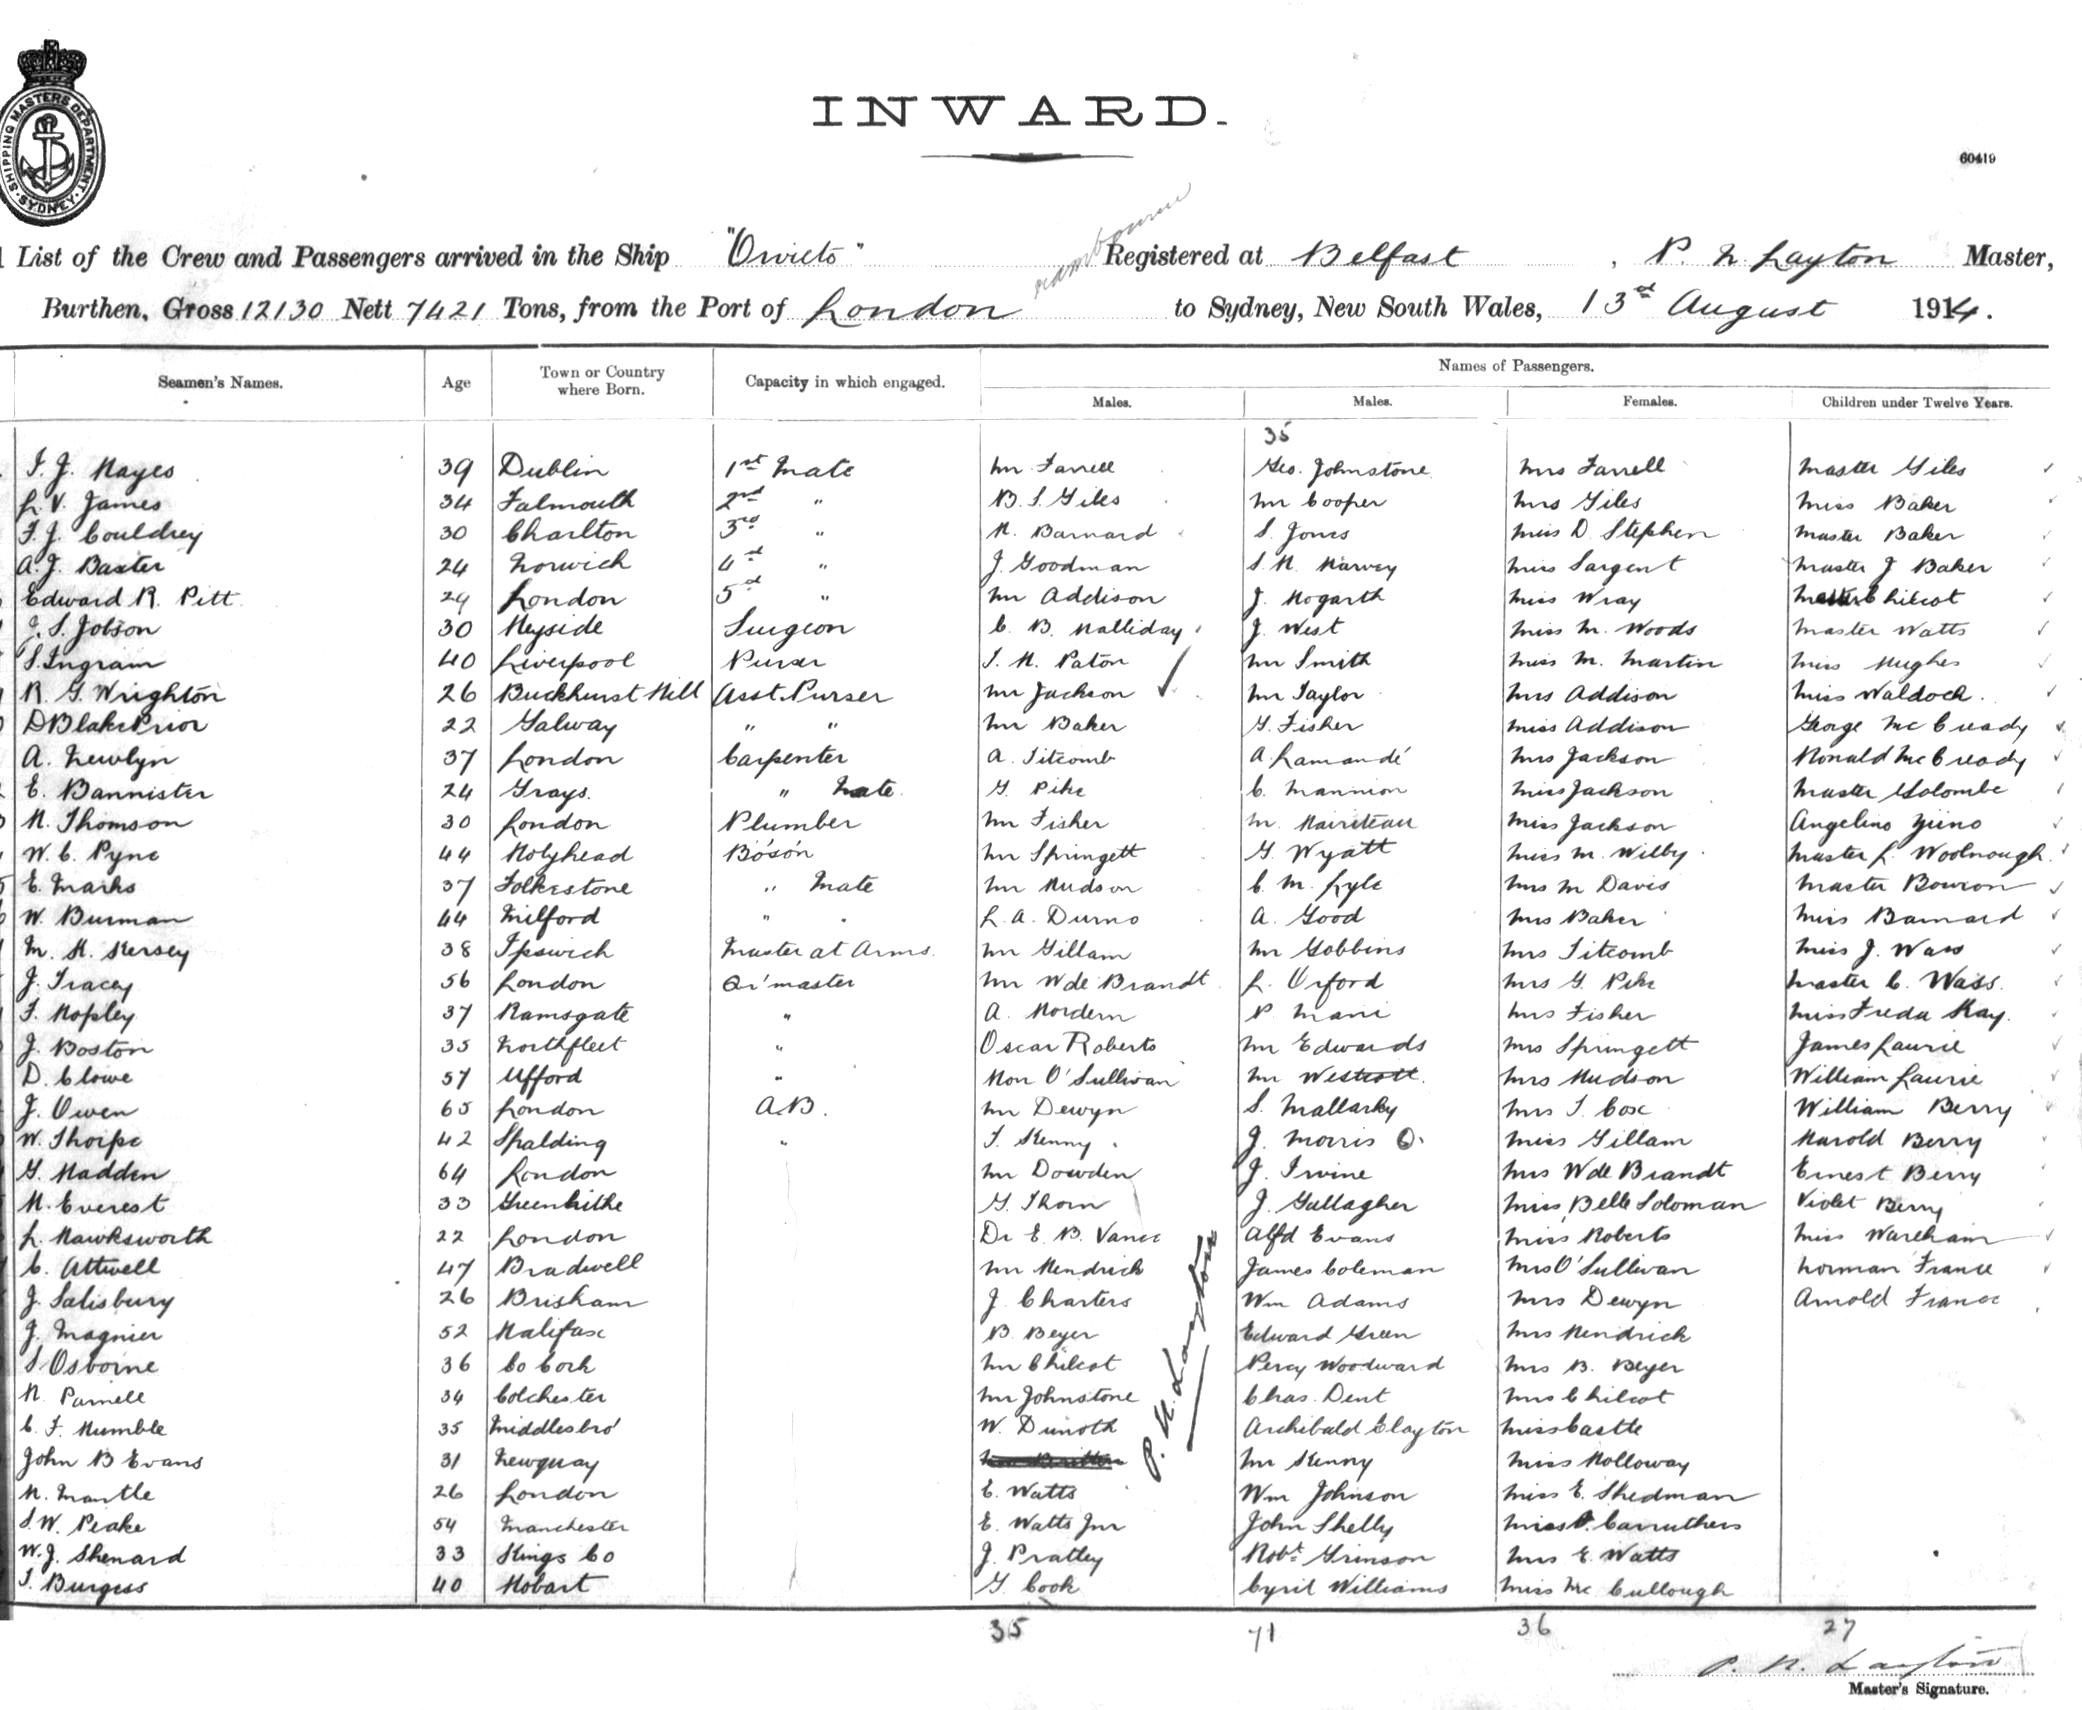 SHIPPING MASTERS DEPARTMENT · SYDNEY ·
INWARD.
60419
List of the Crew and Passengers arrived in the Ship "Orvieto" Registered at Belfast, P. N. Layton Master,
Burthen, Gross 12130 Nett 7421 Tons, from the Port of London to Sydney, New South Wales, 13th August 1914.
Names of Passengers.
Seamen's Names. Age Town or Country where Born. Capacity in which engaged. Males. Males. Females. Children under Twelve Years.
35
F. J. Hayes 39 Dublin 1st Mate Mr Farrell Geo. Johnstone Mrs Farrell Master Giles
L. V. James 34 Falmouth 2nd " B. S. Giles Mr Cooper Mrs Giles Miss Baker
F. J. Couldrey 30 Charlton 3rd " H. Barnard S. Jones Miss D. Stephen Master Baker
A. J. Baxter 24 Norwich 4th " J. Goodman S. H. Harvey Miss Sargent Master J Baker
Edward R. Pitt 24 London 5th " Mr Addison J. Hogarth Miss Wray Master Chilcot
J. S. Jobson 30 Heyside Surgeon C. B. Halliday J. West Miss M. Woods Master Watts
S. Ingram 40 Liverpool Purser T. H. Paton Mr Smith Miss M. Martin Miss Hughes
R. G. Wrighton 26 Buckhurst Hill Asst. Purser Mr Jackson Mr Taylor Mrs Addison Miss Waldock.
D Blake Prior 22 Galway " " Mr Baker G. Fisher Miss Addison George McCready
A. Newlyn 37 London Carpenter A. Titcomb A. Lamandé Mrs Jackson Ronald McCready
E. Bannister 24 Grays. " Mate G. Pike C. Mannion Miss Jackson Master Golombe
H. Thomson 30 London Plumber Mr Fisher Miss Jackson Angelino
W. C. Pyne 44 Holyhead Bo'so'n Mr Springett G. Wyatt Miss M. Wilby Master L. Woolnough
E. Marks 37 Folkestone " Mate Mr Hudson C. M. Lyle Mrs M Davis Master Bowron
W. Burman 44 Milford " " L. A. Durno A. Good Mrs Baker Miss Barnard
M. H. Kersey 38 Ipswich Master at Arms. Mr Gillam Mr Gobbins Mrs Titcomb Miss J. Wass
J. Tracey 56 London Qr'master Mr W de Brandt L. Orford Mrs G. Pike Master C. Wass.
F. Hopley 37 Ramsgate " A. Hordern P. Mani Mrs Fisher Miss Freda Kay.
J. Boston 35 Northfleet " Oscar Roberts Mr Edwards Mrs Springett James Laurie
D. Clowe 57 Ufford " Hon O'Sullivan Mr Westcott. Mrs Hudson William Laurie
J. Owen 65 London A.B. Mr Dewyn S. Mallarky Mrs T. Cox William Berry
W. Thorpe 42 Spalding " T. Kenny J. Morris O. Miss Gillam Harold Berry
G. Hadden 64 London Mr Dowden J. Irvine Mrs W de Brandt Ernest Berry
H. Everest 33 Greenhithe G. Thorn J. Gallagher Miss Belle Soloman Violet Berry
L. Hawksworth 22 London Dr E. B. Vance Alfd Evans Miss Roberts Miss Wareham
C. Attwell 47 Bradwell Mr Hendrick James Coleman Mrs O'Sullivan Norman France
J. Salisbury 26 Brisham J Charters Wm Adams Mrs Dewyn Arnold France
J. Magnier 52 Halifax B. Beyer Edward Green Mrs Hendrick
S Osborne 36 Co Cork Mr Chilcot Percy Woodward Mrs B. Beyer
H. Parnell 34 Colchester Mr Johnstone Chas. Dent Mrs Chilcot
C. F. Humble 35 Middlesbro' W. Dunoth Archibald Clayton Miss Castle
John B Evans 31 Newquay Mr Kenny Miss Holloway
H. Mantle 26 London E. Watts Wm Johnson Miss E. Shedman
S. W. Peake 54 Manchester E. Watts Jnr John Shelly Miss Carruthers
W. J. Shenard 33 Kings Co J. Pratley Robt Grinson Mrs E. Watts
T. Burgess 40 Hobart G. Cook Cyril Williams Miss McCullough
P. N. Layton
35 71 36 27
P. N. Layton
Master's Signature.